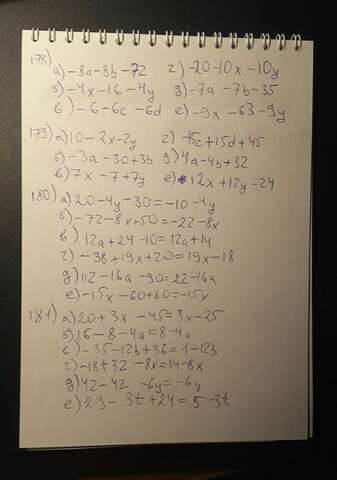 178) а) -8a-8b-72 г) -20-10x-10y
б) -4x-16-4y д) -7a-7b-35
в) -6-6c-6d е) -9x-63-9y
179) а) 10-2x-2y г) -15c+15d+45
б) -3a-30+3b д) 4a-4b+32
в) 7x-7+7y е) 12x+12y-24
180) а) 20-4y-30=-10-4y
б) -72-8x+50=-22-8x
в) 12a+24-10=12a+14
г) -38+19x+20=19x-18
д) 112-16a-90=22-16a
е) -15x-60+60=-15x
181) а) 20+3x-45=3x-25
б) 16-8-4a=8-4a
в) -35-12b+36=1-12b
г) -18+32-8x=14-8x
д) 42-42-6y=-6y
е) 29-3t+24=5-3t